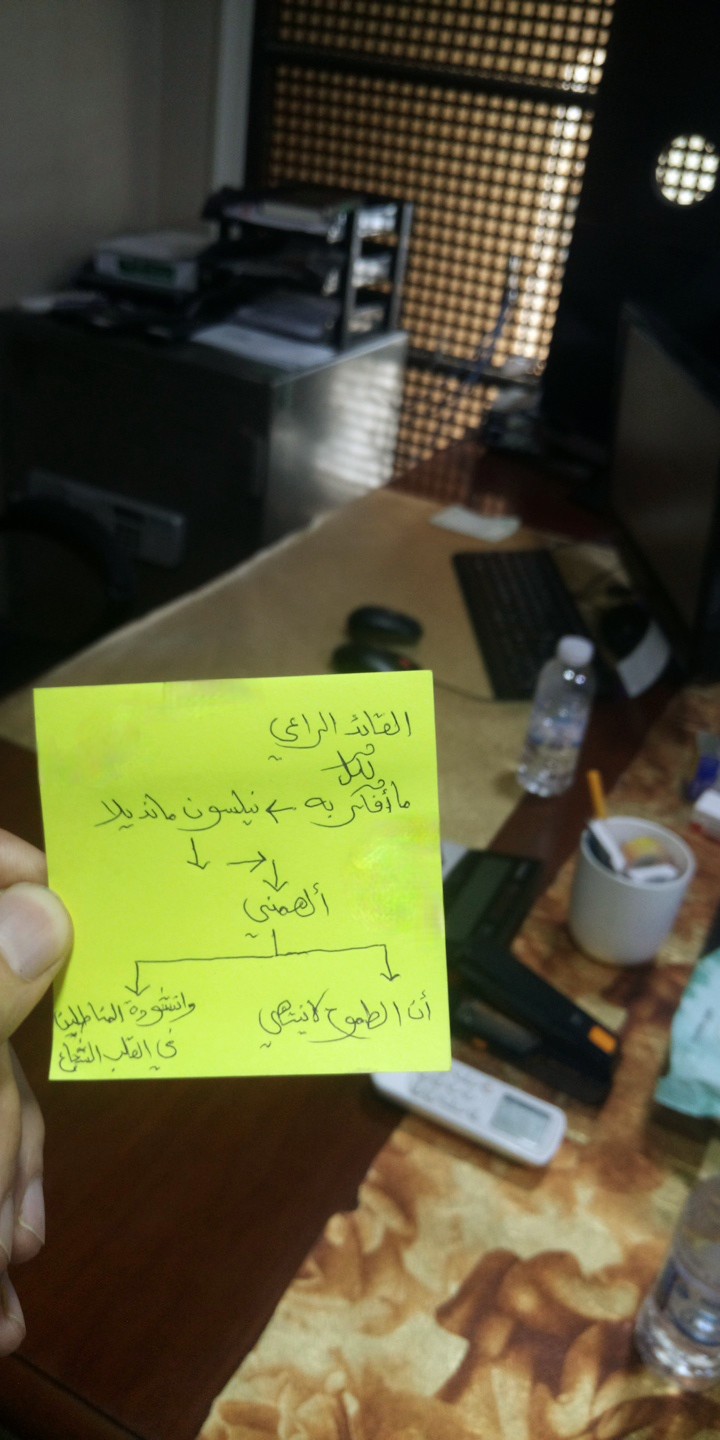 القائد الراعي
لكل
ما أفكر به ← نيلسون مانديلا
ألهمني
أن الطموح لا ينتهي
وانشودة المناطلينا
في القلب الشجاع